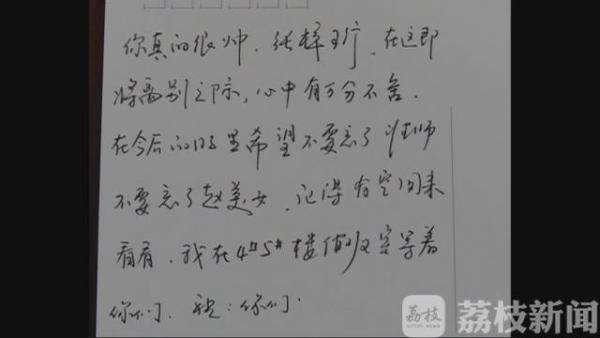 你真的很帅.张梓疗.在这即
将离别之际,心中有万分不舍.
在今后的日子里希望不要忘了 师
不要忘了赵美女.记得有空回来
看看.我在4#5#楼值班室等着
你们. 祝:你们.
荔枝
荔枝新闻